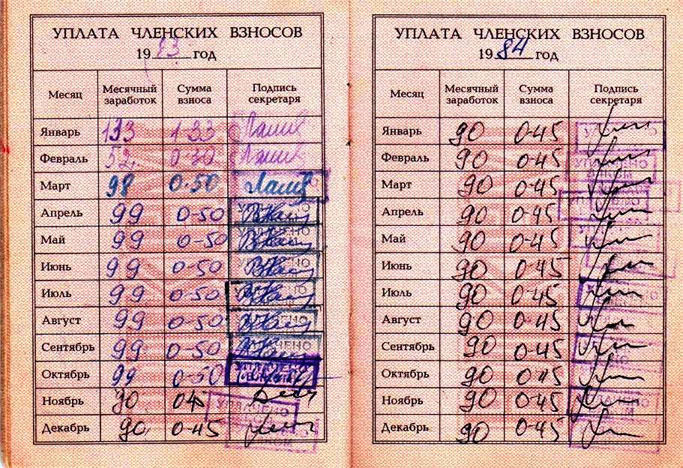 УПЛАТА ЧЛЕНСКИХ ВЗНОСОВ
1983 год
Месяц Месячный заработок Сумма взноса Подпись секретаря
Январь 133 1-33
Февраль 52 0-30
Март 98 0-50
Апрель 99 0-50
Май 99 0-50
Июнь 99 0-50
Июль 99 0-50
Август 99 0-50
Сентябрь 99 0-50
Октябрь 99 0-50
Ноябрь 90
Декабрь 90 0-45
УПЛАТА ЧЛЕНСКИХ ВЗНОСОВ
1984 год
Месяц Месячный заработок Сумма взноса Подпись секретаря
Январь 90 0-45
Февраль 90 0-45 УПЛАЧЕНО
Март 90 0-45
Апрель 90 0-45
Май 90 0-45
Июнь 90 0-45
Июль 90 0-45
Август 90 0-45
Сентябрь 90 0-45
Октябрь 90 0-45
Ноябрь 90 0-45
Декабрь 90 0-45